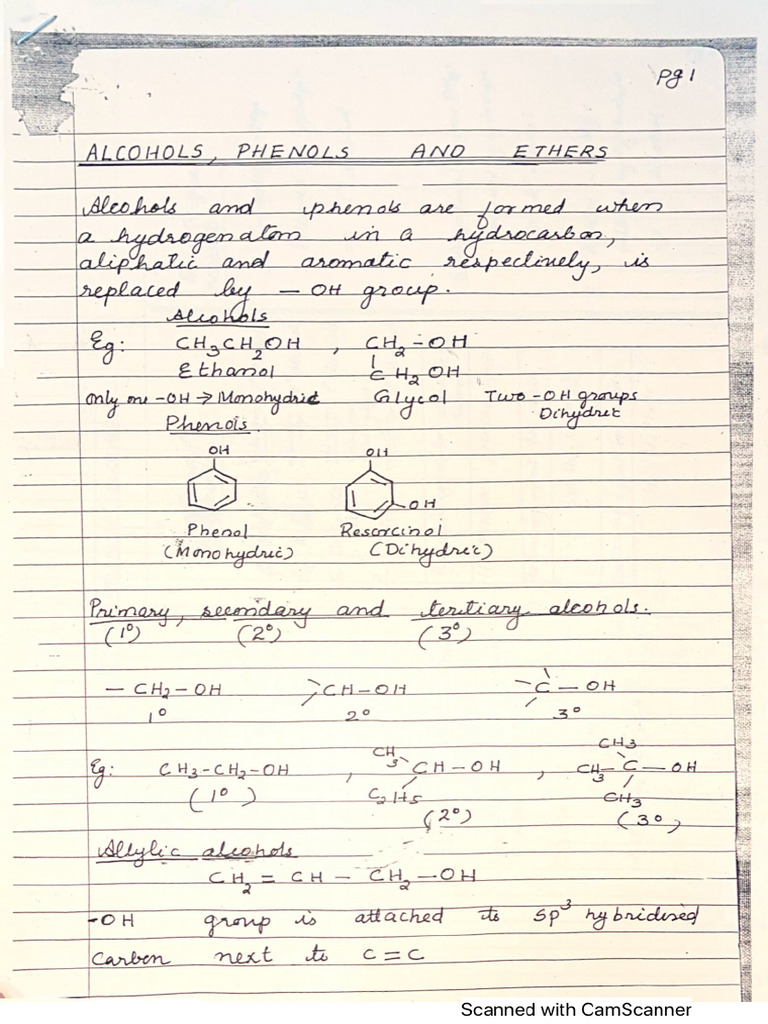 Pg 1
ALCOHOLS, PHENOLS AND ETHERS
Alcohols and phenols are formed when
a hydrogen atom in a hydrocarbon,
aliphatic and aromatic respectively, is
replaced by - OH group.
Alcohols
Eg: CH3CH2OH , CH2-OH
Ethanol CH2OH
Only one -OH → Monohydric Glycol Two -OH groups
Dihydric
Phenols
OH OH
OH
Phenol Resorcinol
(Monohydric) (Dihydric)
Primary, secondary and tertiary alcohols.
(1°) (2°) (3°)
- CH2-OH >CH-OH -C-OH
1° 2° 3°
CH3 CH3
Eg: CH3-CH2-OH , CH-OH , CH3-C-OH
C2H5 CH3
(1°) (2°) (3°)
Allylic alcohols
CH2 = CH - CH2-OH
-OH group is attached to sp3 hybridised
carbon next to C=C
Scanned with CamScanner